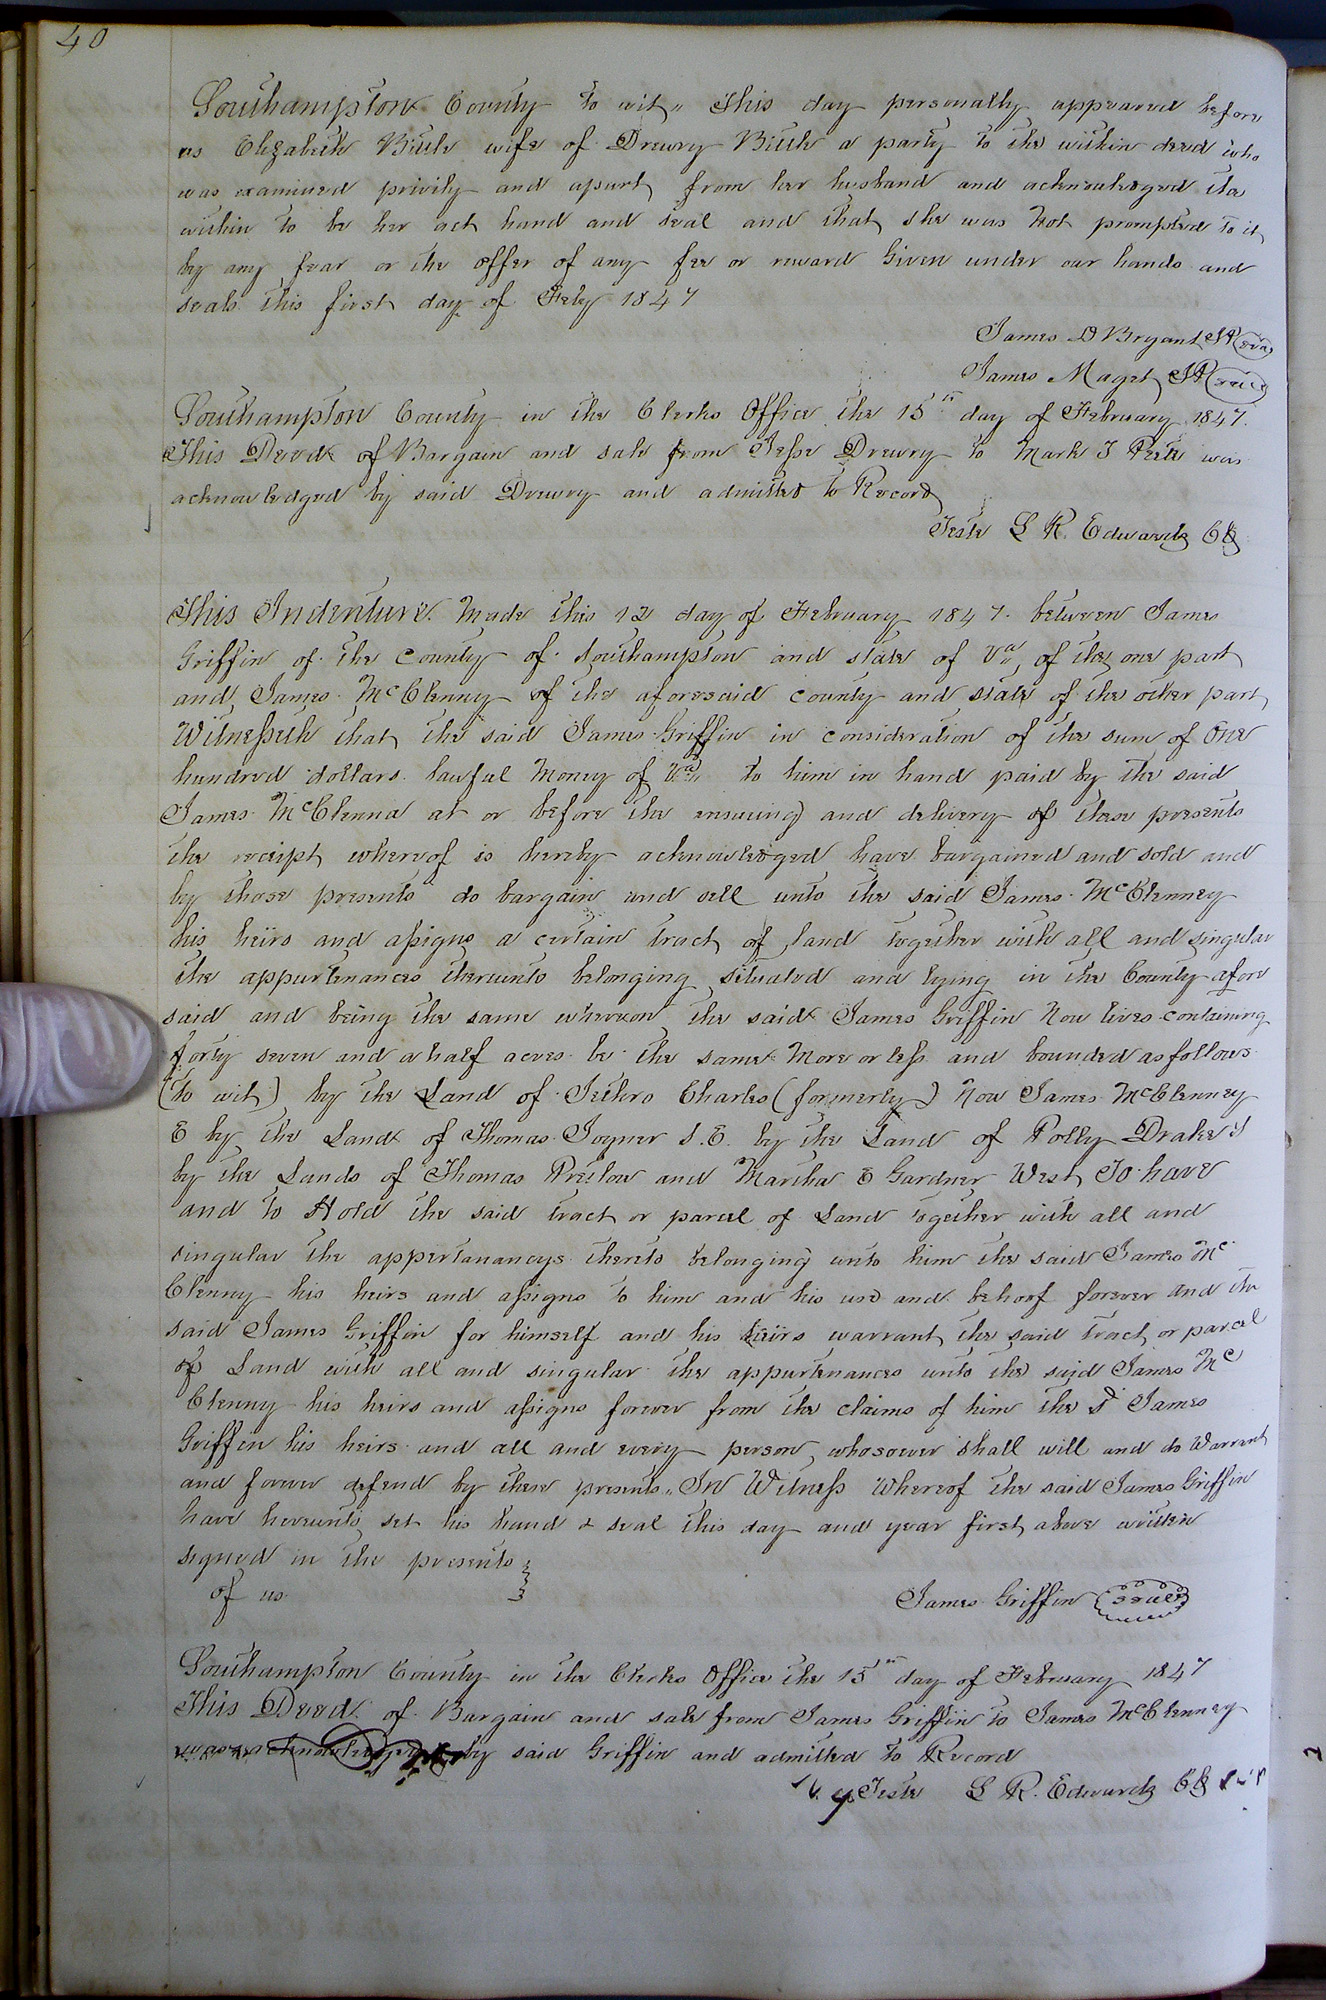 40
Southampton County to wit,, This day personally appeared before
us Elizabeth Bittle wife of Drewry Bittle a party to the within deed who
was examined privily and apart from her husband and acknowledged the
within to be her act hand and seal and that she was not prompted to it
by any fear or the offer of any fee or reward Given under our hands and
seals this first day of Feby 1847
James D Bryant JP (seal)
James Maget JP (seal)
Southampton County in the Clerks Office the 15th day of February 1847.
This Deed of Bargain and sale from Jesse Drewry to Mark J was
acknowledged by said Drewry and admitted to Record
Teste L R. Edwards Clk
This Indenture Made this 12 day of February 1847. between James
Griffin of the County of Southampton and state of Va,, of the one part
and James McClenny of the aforesaid county and state of the other part
Witnesseth that the said James Griffin in consideration of the sum of One
hundred dollars lawful Money of Va,, to him in hand paid by the said
James McClenna at or before the ensuing and delivery of these presents
the receipt whereof is hereby acknowledged have bargained and sold and
by those presents do bargain and sell unto the said James McClenney
his heirs and assigns a certain tract of land together with all and singular
the appurtenances thereunto belonging situated and lying in the County afore
said and being the same whereon the said James Griffin Now lives containing
forty seven and a half acres be the same More or less and bounded as follows
(to wit) by the Land of Jethro Charles (formerly) Now James McClenney
E by the Land of Thomas Joyner S. E. by the Land of Polly Drake S
by the Lands of Thomas Pretlow and Martha E Gardner West To have
and to Hold the said tract or parcel of Land together with all and
singular the appertanancys thereto belonging unto him the said James Mc
Clenny his heirs and assigns to him and his use and behoof forever And the
said James Griffin for himself and his heirs warrant the said tract or parcel
of Land with all and singular the appurtenances unto the said James Mc
Clenny his heirs and assigns forever from the claims of him the sd James
Griffin his heirs and all and every person whosoever shall will and do Warrant
and forever defend by these presents,, In Witness Whereof the said James Griffin
have hereunto set his hand & seal this day and year first above written
signed in the presents
of us
James Griffin (seal)
Southampton County in the Clerks Office the 15th day of February 1847
This Deed of Bargain and sale from James Griffin to James McClenney
was acknowledged by said Griffin and admitted to Record
Teste L R. Edwards Clk